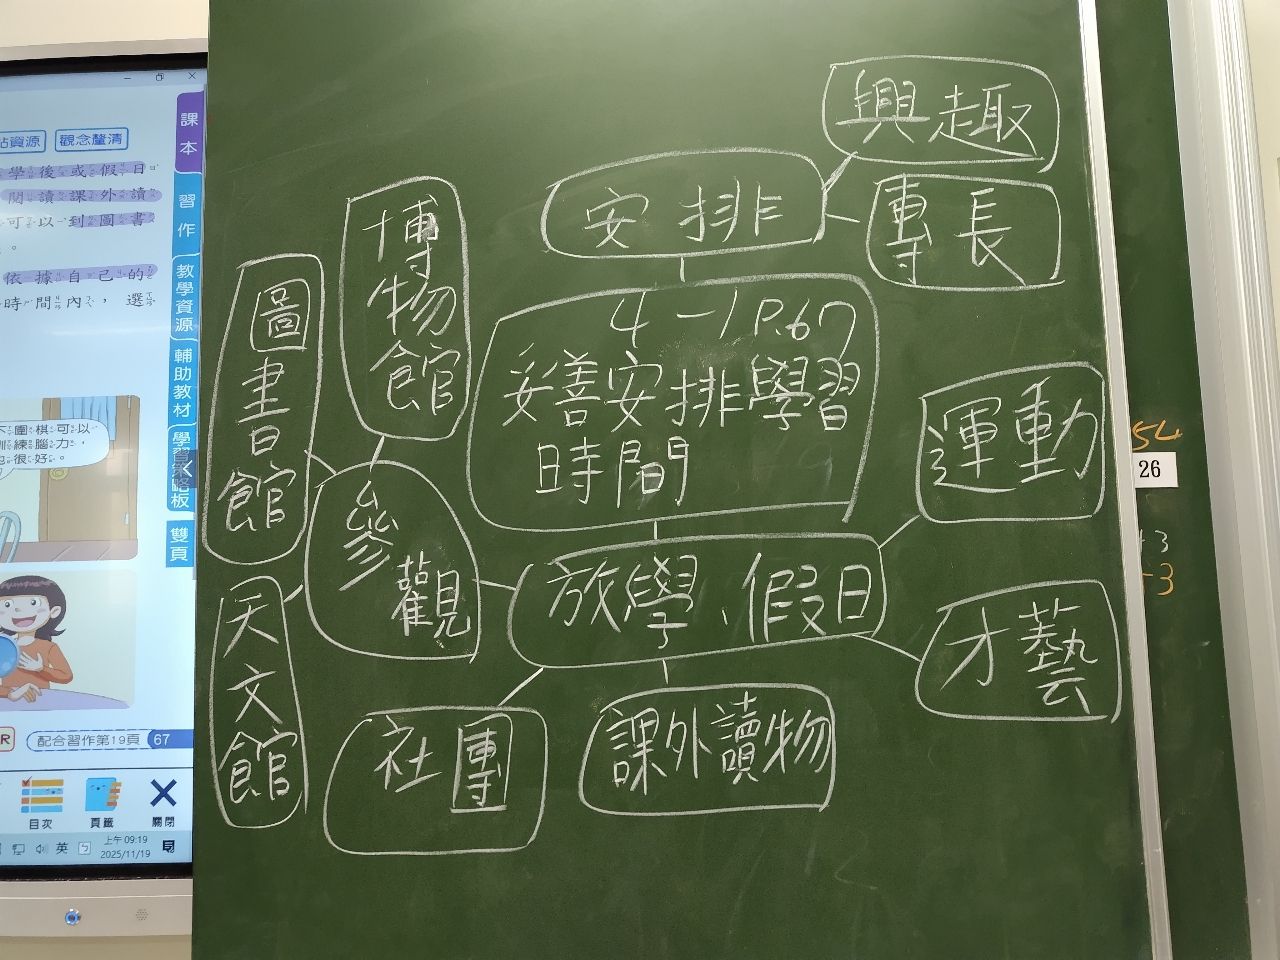 興趣
專長
安排
4-1 P.67
妥善安排學習
時間
博物館
圖書館
天文館
參觀
放學、假日
運動
才藝
社團
課外讀物
站資源
觀念釐清
學後或假日
閱讀課外讀
可以到圖書
。
依據自己的
時間內，選
下圍棋可以
訓練腦力，
也很好。
課本
習作
教學資源
輔助教材
學習策略板
雙頁
R
配合習作第19頁 67
目次
頁籤
關閉
英
上午 09:19
2025/11/19
54
26
+3